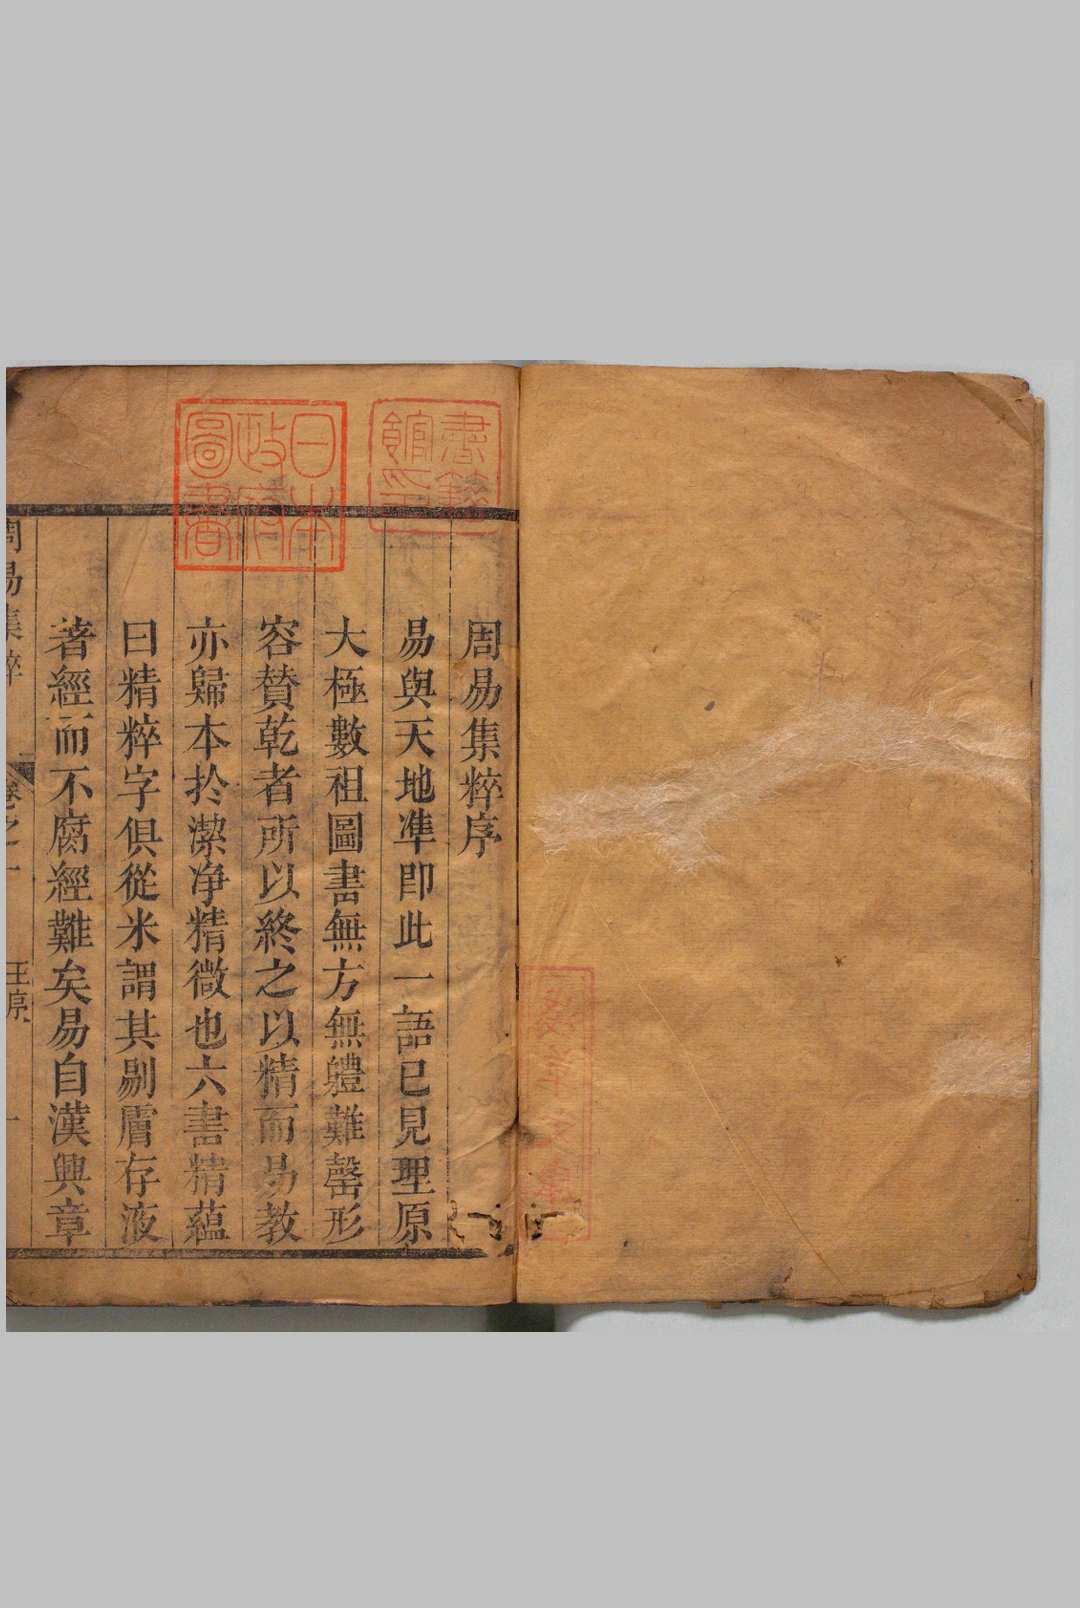 周易集粹序
易與天地準即此一語已見理原
大極數祖圖書無方無體難罄形
容贊乾者所以終之以精而易教
亦歸本於潔净精微也六書精蘊
曰精粹字俱從米謂其剔膚存液
著經而不腐經難矣易自漢興章
周易集粹
卷之一
王序
一
書籍館印
日本政府圖書